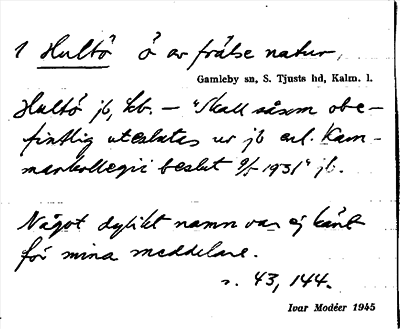 1 Hultö ö av frälse natur,
Gamleby sn, S. Tjusts hd, Kalm. l.
Hultö jb, kb. – "Skall såsom obe-
fintlig uteslutas ur jb enl. Kam-
markollegii beslut 9/5 1931" jb.
Något dylikt namn var ej känt
för mina meddelare.
s. 43, 144.
Ivar Modéer 1945